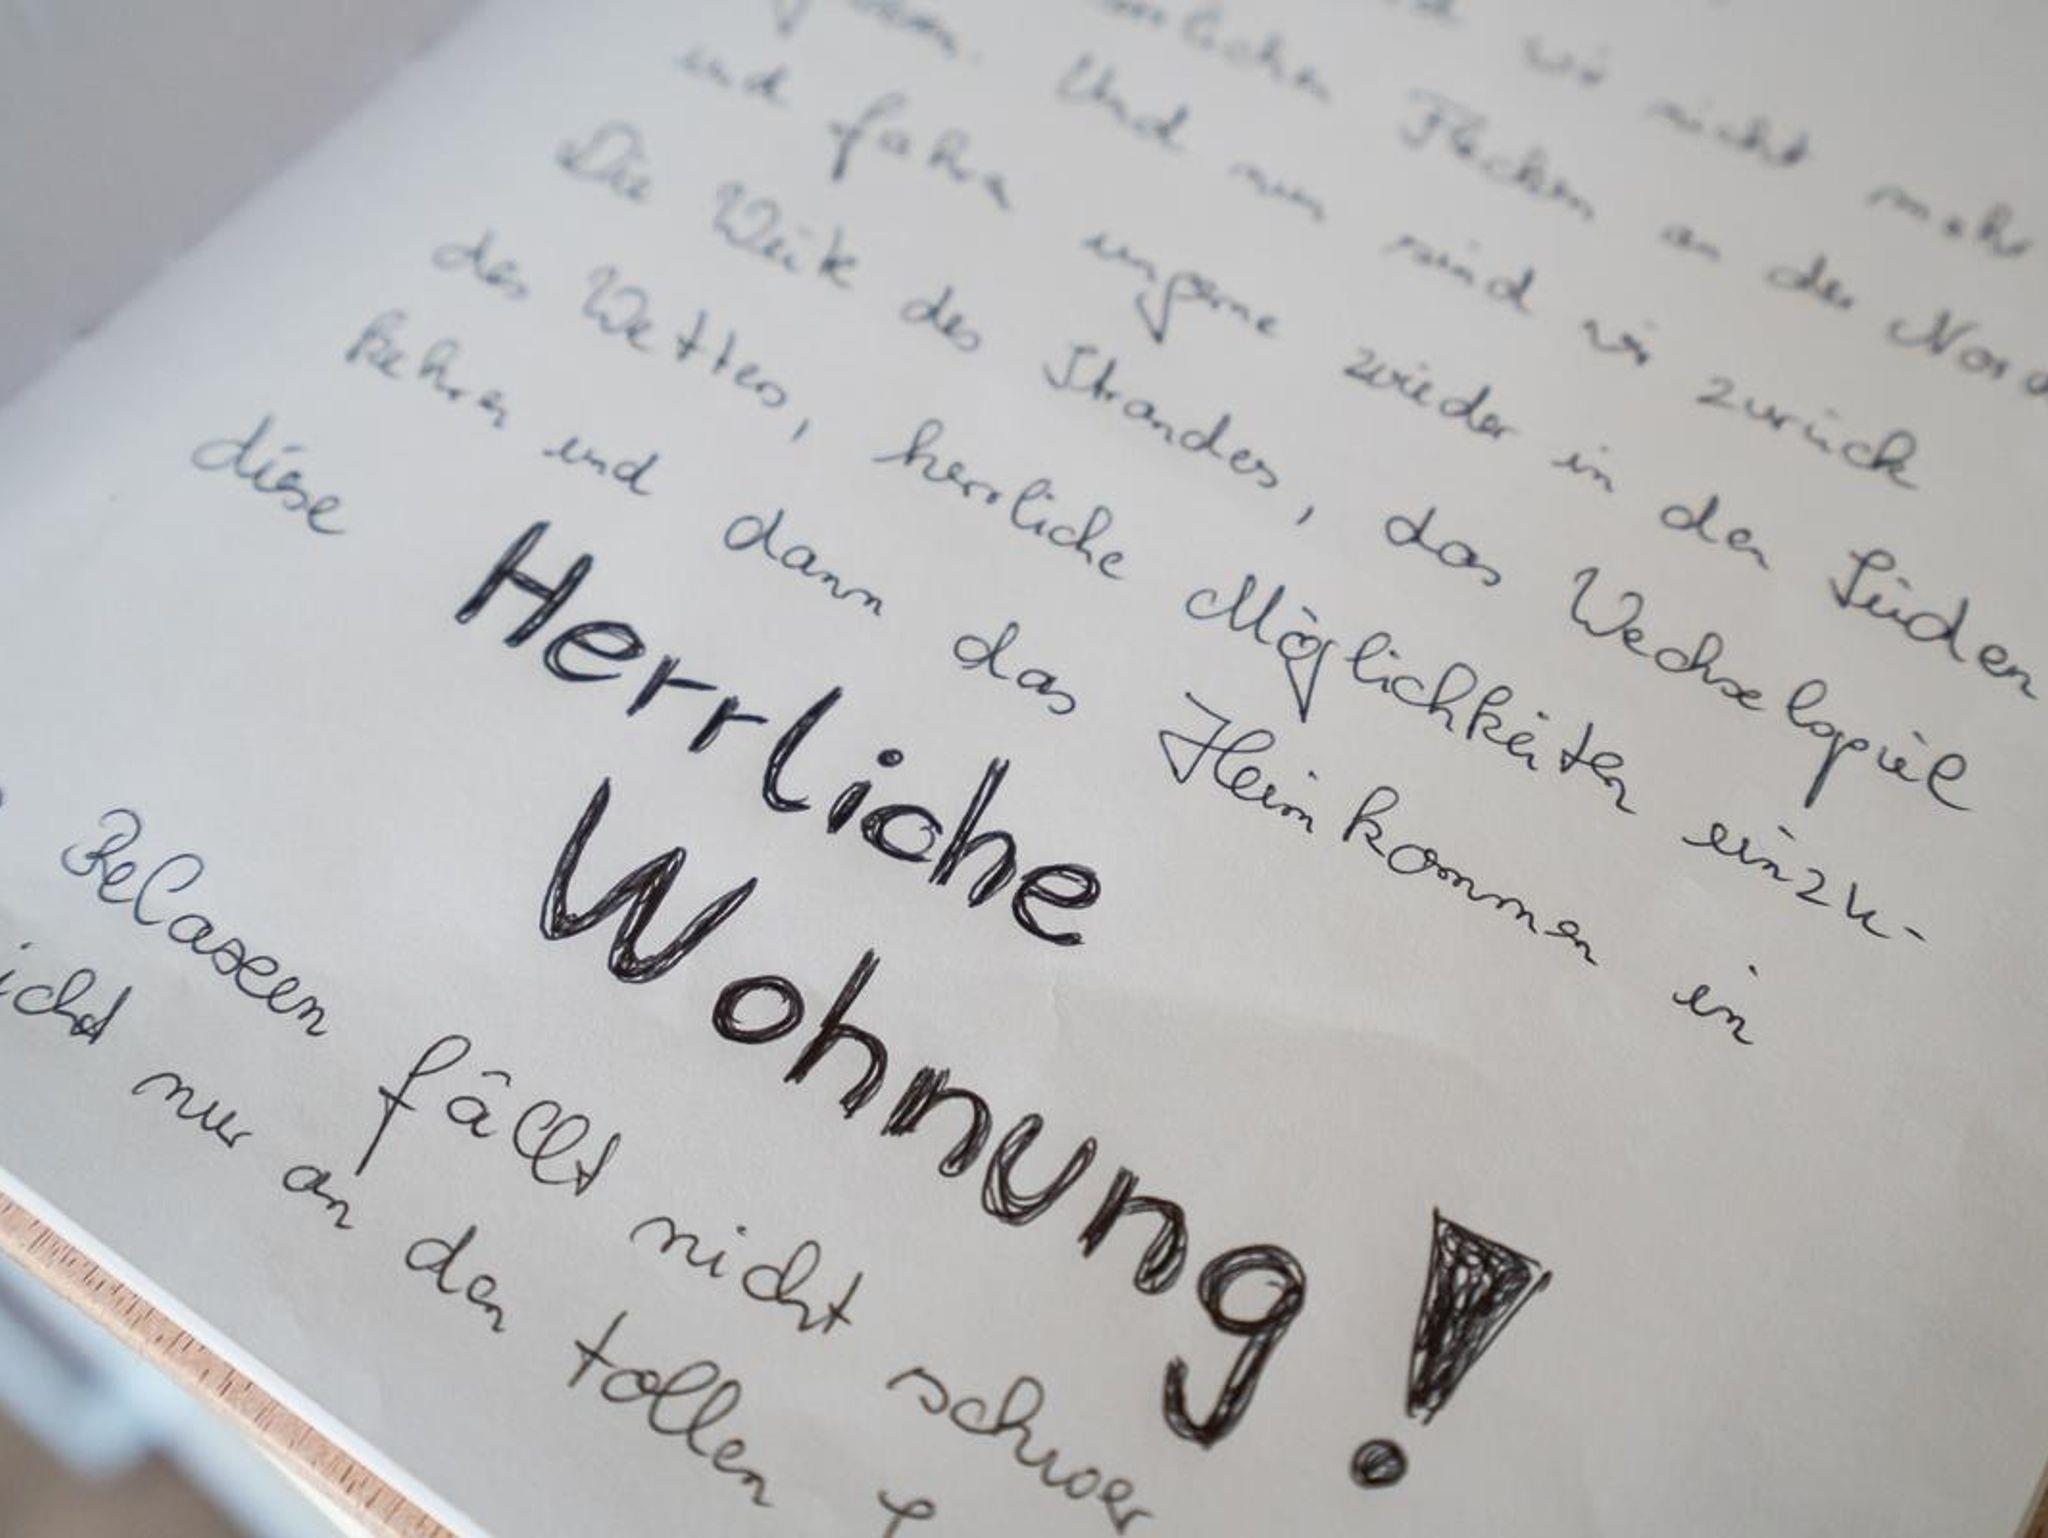 wir nicht mehr
Flecken an der Nord
Und nun sind wir zurück
und fahrn ungerne wieder in den Süden
Die Weite des Strandes, das Wechselspiel
des Wetters, herrliche Möglichkeiten einzu-
kehren und dann das Heimkommen in
diese Herrliche
Wohnung!
Relaxen fällt nicht schwer
nur an den tollen